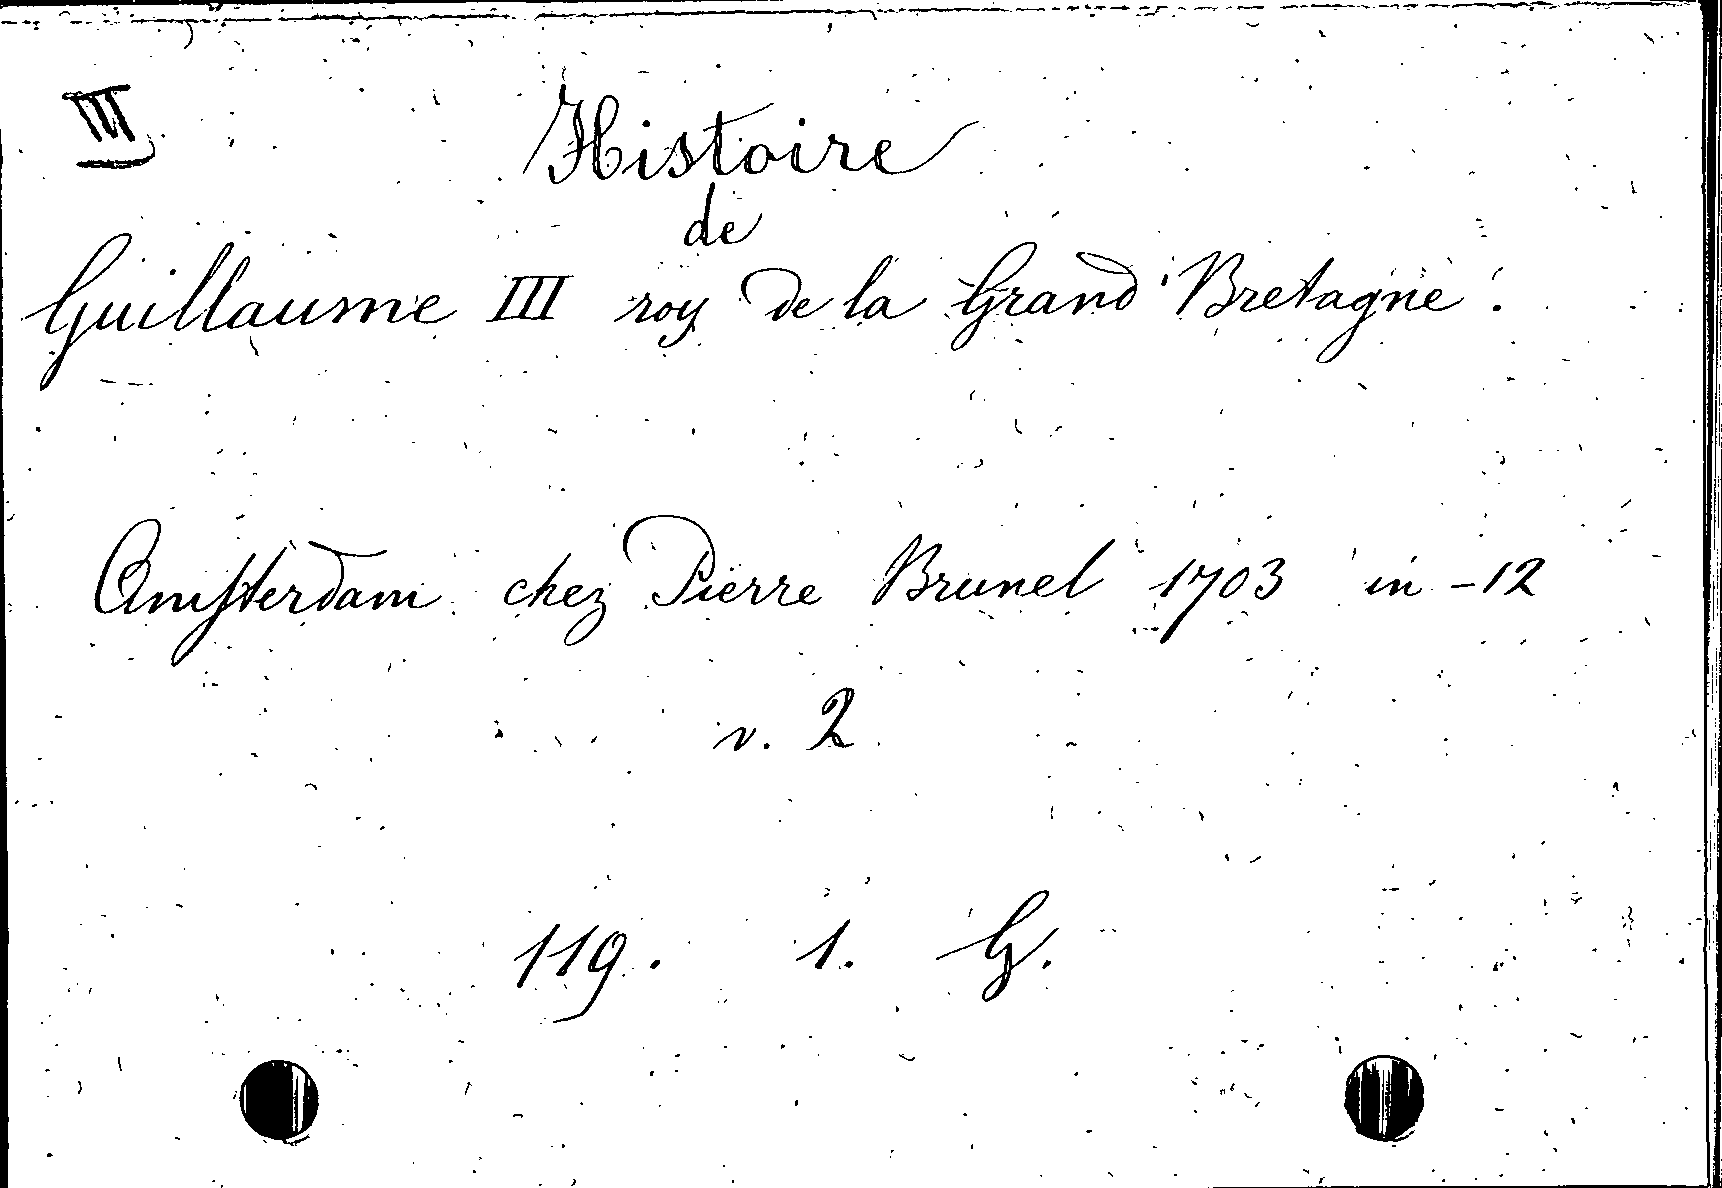 III
Histoire
de
Guillaume III roy de la Grand Bretagne.
Amsterdam chez Pierre Brunel 1703 in-12
v. 2
119. 1. G.